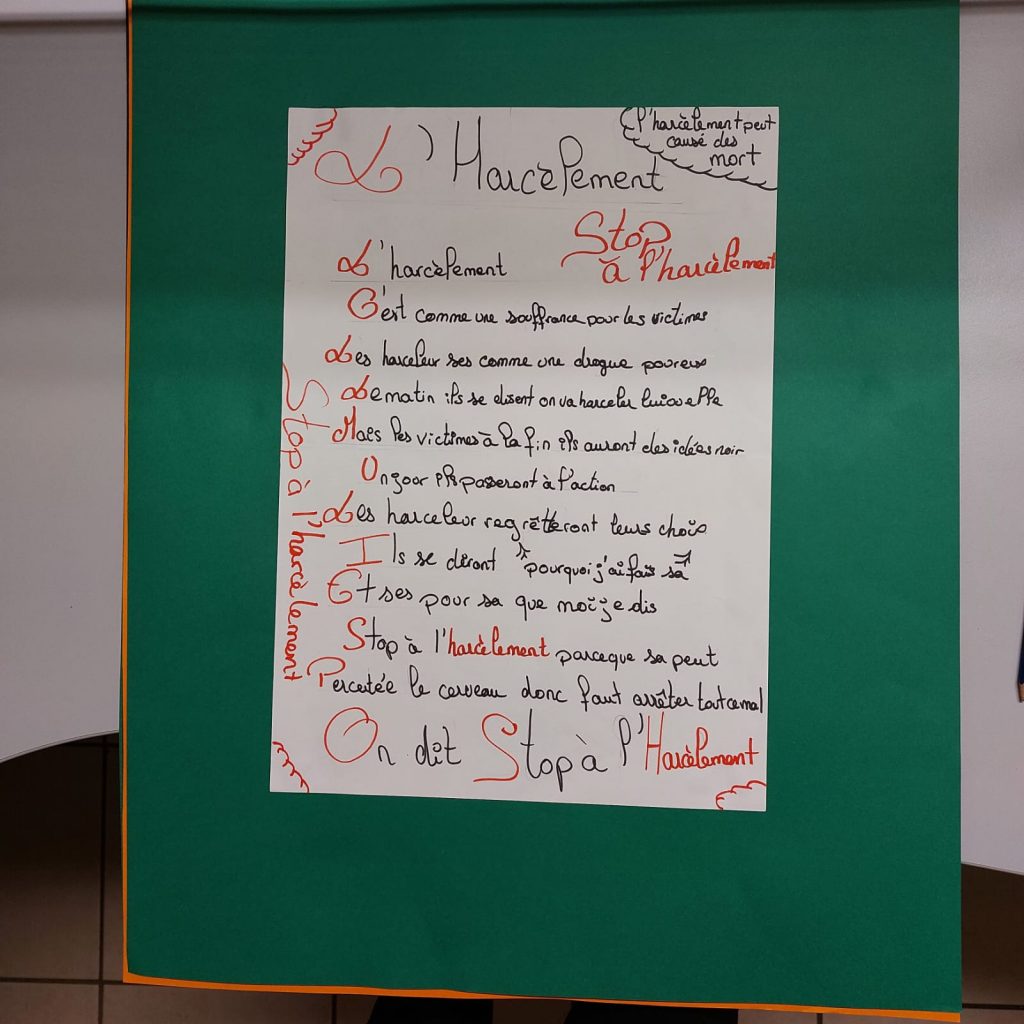 L'Harcèlement
l'harcèlement peut
causé des
mort
Stop
à l'harcèlement
L'harcèlement
C'est comme une souffrance pour les victimes
Les harceleur ses comme une drogue pour eux
Le matin ils se disent on va harceler lui ou elle
Mais les victimes à la fin ils auront des idées noir
Un joor ils passeront à l'action
Les harceleur regrètteront leurs chois
Ils se diront "pourquoi j'ai fais sa"
Et ses pour sa que moi je dis
Stop à l'harcèlement parceque sa peut
Percutée le cerveau donc faut arrêter tout ce mal
On dit Stop à l'Harcèlement
Stop à l'harcèlement